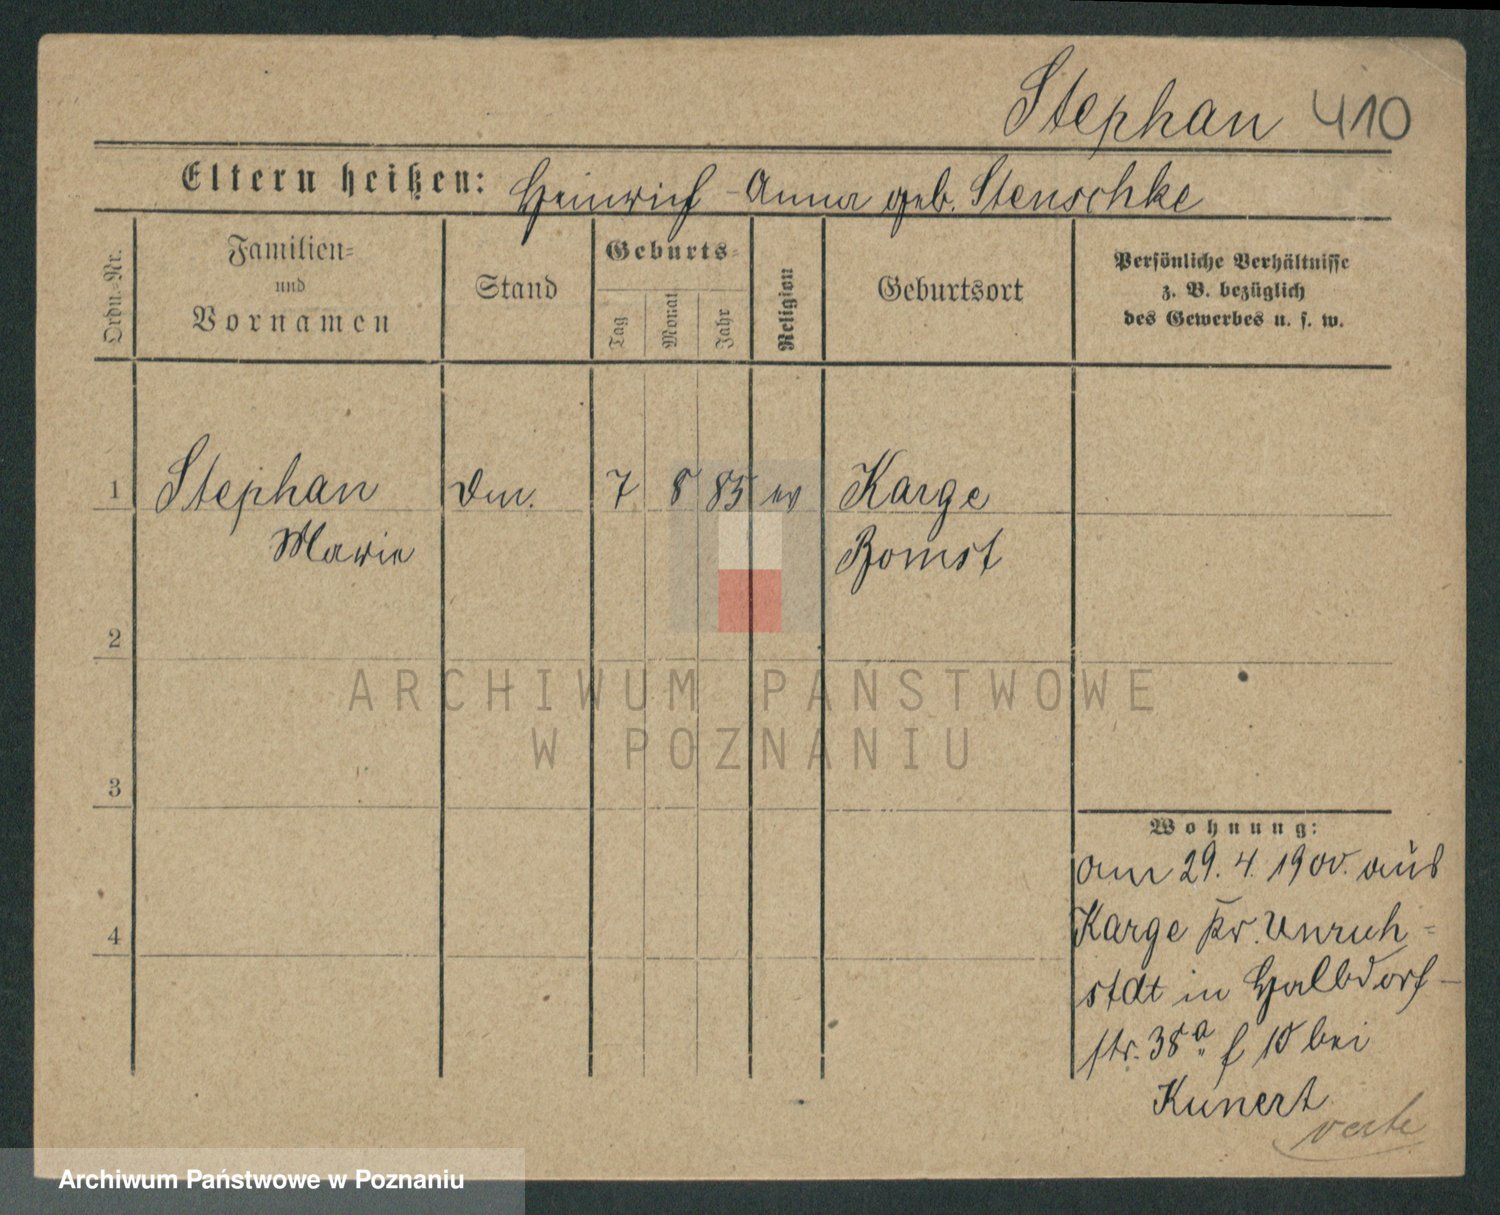 Stephan 410
Eltern heißen: Heinrich - Anna geb. Stenschke
Ordn.-Nr.
Familien-
und
Vornamen
Stand
Geburts-
Tag
Monat
Jahr
Religion
Geburtsort
Persönliche Verhältnisse
z. B. bezüglich
des Gewerbes u. s. w.
1 Stephan 7 8 85 ev Karge
Marie Bomst
2
3
4
Wohnung:
am 29. 4. 1900. aus
Karge Kr. Unruh-
stdt in Halbdorf-
str. 38a. f 10 bei
Kunert
verte
ARCHIWUM PAŃSTWOWE
W POZNANIU
Archiwum Państwowe w Poznaniu